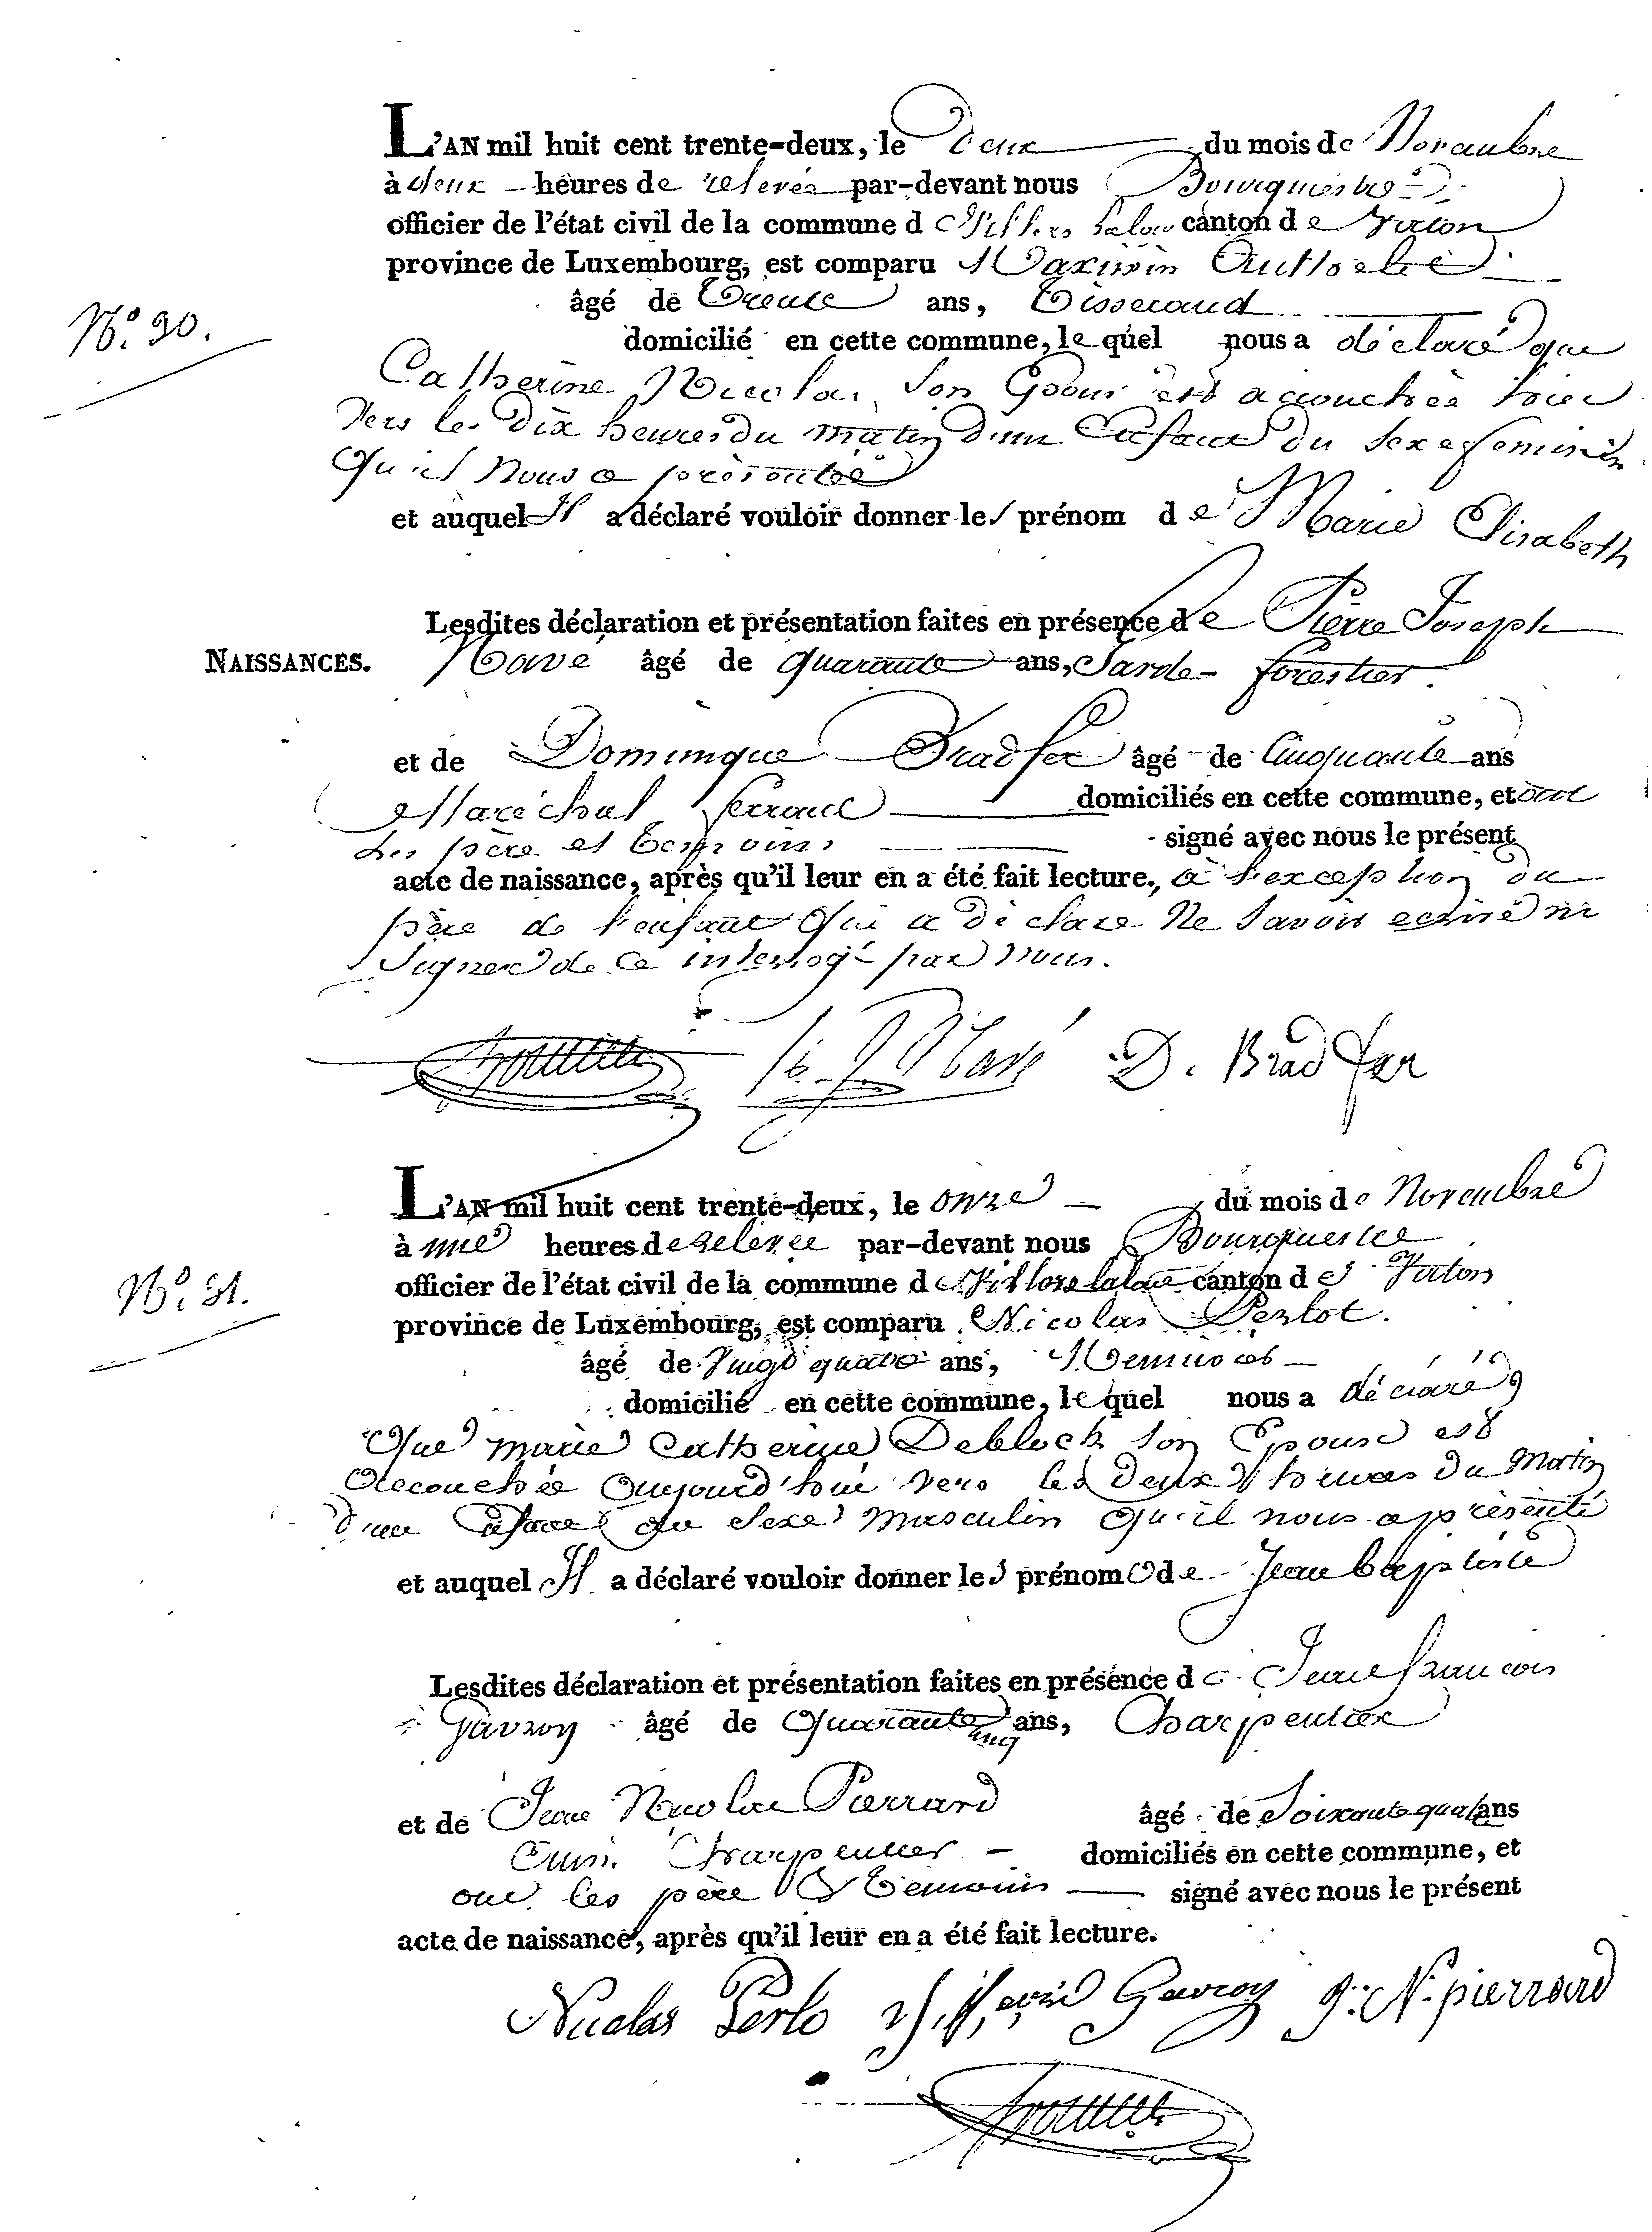 L'AN mil huit cent trente-deux, le Deux du mois de Novembre
à deux heures de relevée par-devant nous Bourguignon
officier de l'état civil de la commune de Villers laloue canton de Virton
province de Luxembourg, est comparu Maximin
âgé de Trente ans, Tisserand
N.o 30.
domicilié en cette commune, le quel nous a déclaré que
Catherine Nicolas, Son Epouse est accouchée hier
Vers les Dix heures du matin d'un Enfant du sexe feminin
Qu'il Nous a présenté
et auquel Il a déclaré vouloir donner les prénom de Marie Elisabeth
Lesdites déclaration et présentation faites en présence de Pierre Joseph
NAISSANCES.
Navé âgé de quarante ans, Garde-forestier.
et de Dominique Bradfer âgé de Cinquante ans
Maréchal ferrant domiciliés en cette commune, et ont
Les père et temoins signé avec nous le présent
acte de naissance, après qu'il leur en a été fait lecture, à l'exception du
père de l'enfant Qui a déclaré Ne Savoir ecrire ni
Signer de ce interrogé par nous.
p. J Navé D. Bradfer
L'AN mil huit cent trente-deux, le onze du mois de Novembre
à une heures de relevée par-devant nous
officier de l'état civil de la commune de Villers laloue canton de Virton
N.o 31.
province de Luxembourg, est comparu Nicolas Perlot.
âgé de Vingt quatre ans, Menuisier
domicilié en cette commune, le quel nous a déclaré
Que marie Catherine Deblock son Epouse est
Accouchée aujourd'hui vers les Deux heures du Matin
d'un Enfant du Sexe masculin Qu'il nous a présenté
et auquel Il a déclaré vouloir donner les prénom de Jean baptiste
Lesdites déclaration et présentation faites en présence de Jean francois
Gavroy âgé de Quarante cinq ans, Charpentier
et de Jean Nicolas Pierrard âgé de Soixante quatre ans
aussi Charpentier domiciliés en cette commune, et
ont les père & Temoins signé avec nous le présent
acte de naissance, après qu'il leur en a été fait lecture.
Nicolas Perlo Gavroy J: N. pierrard